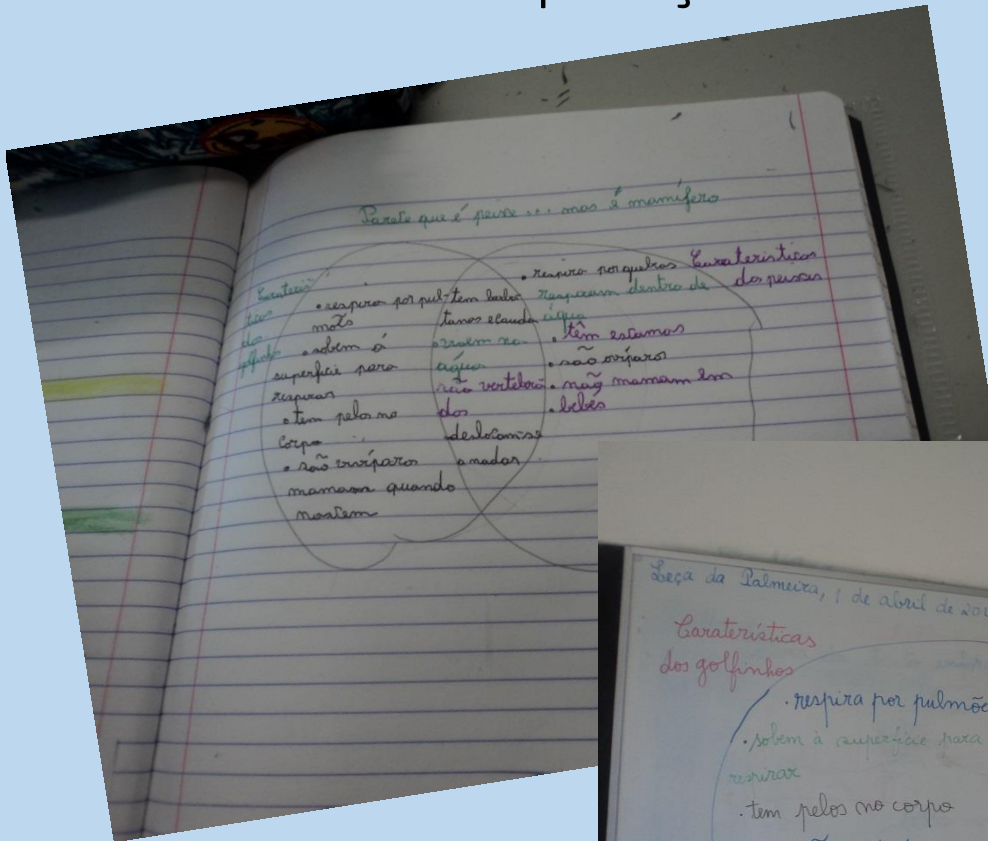 Parece que é peixe ... mas é mamífero
Carateris-
ticas
dos
golfinhos
• respira por pul-
mões
• sobem á
superficie para
respirar
• tem pelos no
corpo
• são vivíparos
mamam quando
nascem
tem barba
tanas e cauda
vivem na
água
são vertebra
dos
deslocam-se
a nadar
Carateristicas
dos peixes
• respira por guelras
respiram dentro de
água
• têm escamas
• são ovíparos
• não mamam em
• bebés
Leça da Palmeira, 1 de abril de 20
Caraterísticas
dos golfinhos
• respira por pulmõe
• sobem à superfície para
respirar
• tem pelos no corpo